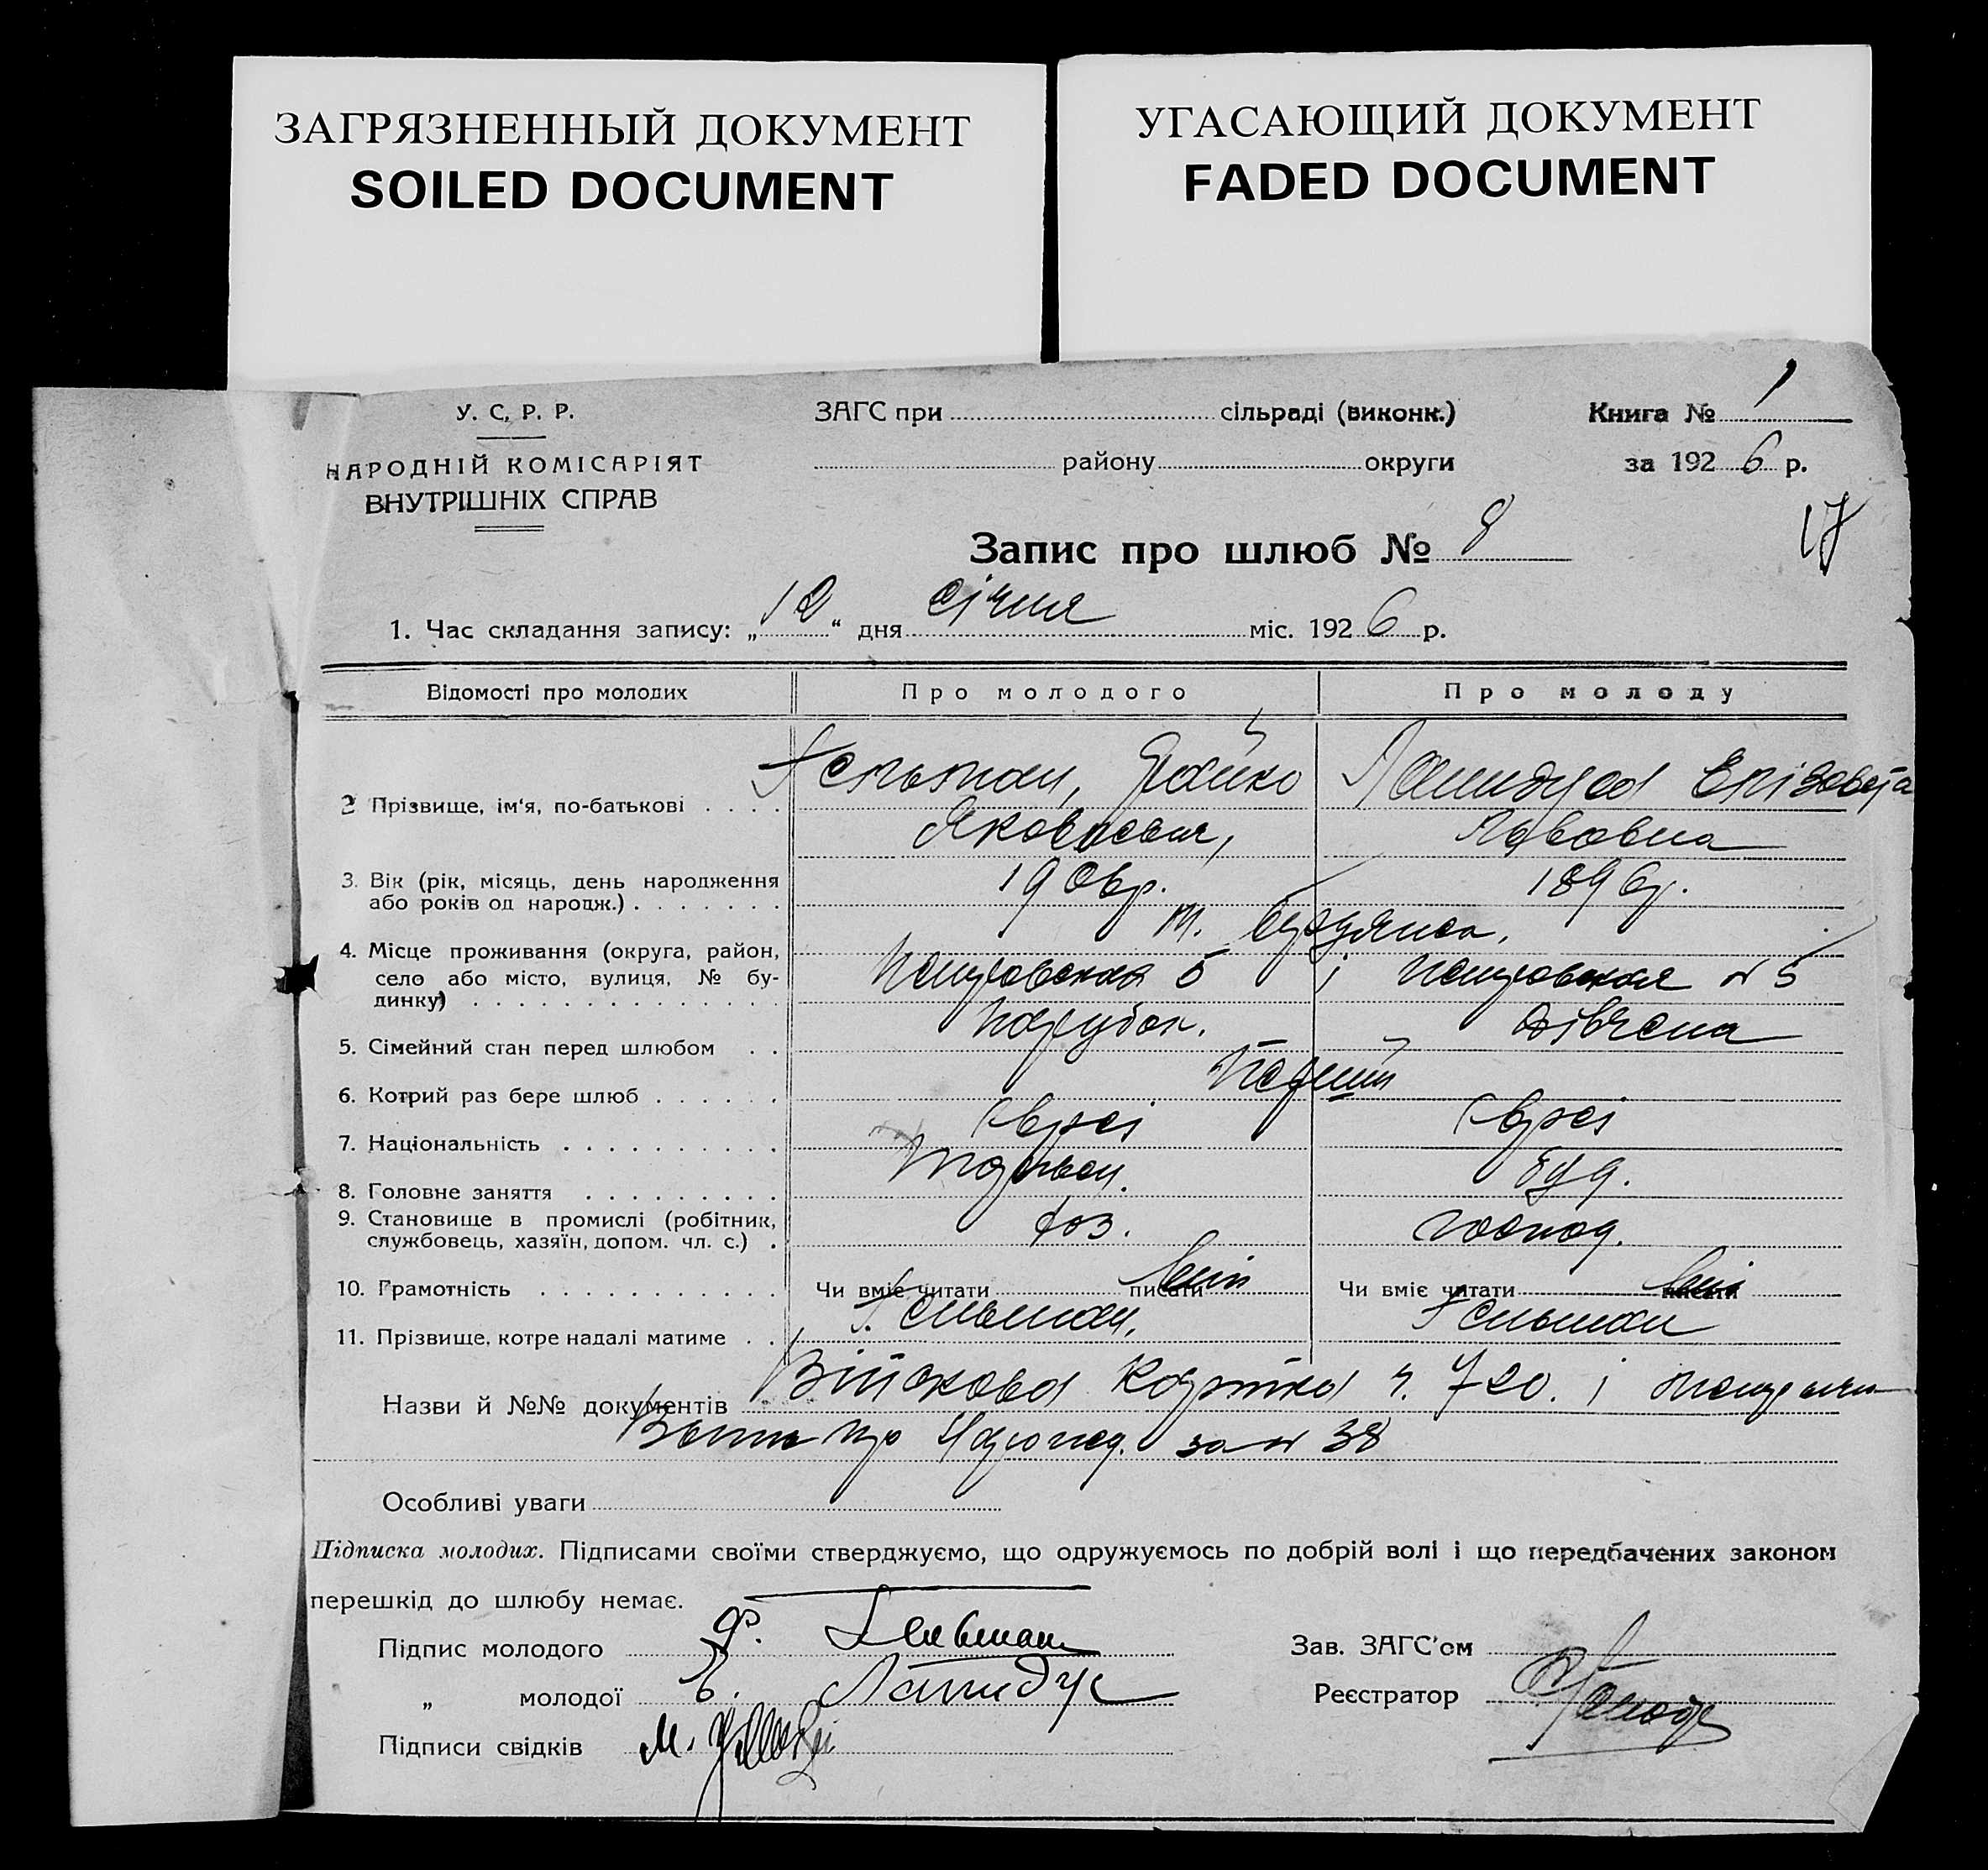 ЗАГРЯЗНЕННЫЙ ДОКУМЕНТ
SOILED DOCUMENT
УГАСАЮЩИЙ ДОКУМЕНТ
FADED DOCUMENT
У. С. Р. Р.
НАРОДНІЙ КОМІСАРІЯТ
ВНУТРІШНІХ СПРАВ
ЗАГС при сільраді (виконк.)
району округи
Книга № 1
за 1926 р.
17
Запис про шлюб № 8
1. Час складання запису: „12“ дня січня міс. 1926 р.
Відомості про молодих Про молодого Про молоду
2 Прізвище, ім'я, по-батькові Гельман, Лапидус Єлізавета
Яковлевич, Львовна
3. Вік (рік, місяць, день народження
або років од народж.) 1906р. 1896р.
4. Місце проживання (округа, район,
село або місто, вулиця, № бу-
динку)
м. Бердянск.
5 і № 5
5. Сімейний стан перед шлюбом Парубок. Дівчена
6. Котрий раз бере шлюб Перший
7. Національність Євреі Євреі
8. Головне заняття
9. Становище в промислі (робітник,
службовець, хазяїн, допом. чл. с.) хоз. господ.
10. Грамотність Чи вміє читати писати вміє Чи вміє читати писати вміє
11. Прізвище, котре надалі матиме Гельман. Гельман
Назви й №№ документів Війскова Картка ч. 720. і
про за № 38
Особливі уваги
Підписка молодих. Підписами своїми стверджуємо, що одружуємось по добрій волі і що передбачених законом
перешкід до шлюбу немає.
Підпис молодого Ф. Гельман
„ молодої Е. Лапидус
Підписи свідків М.
Зав. ЗАГС'ом
Реєстратор